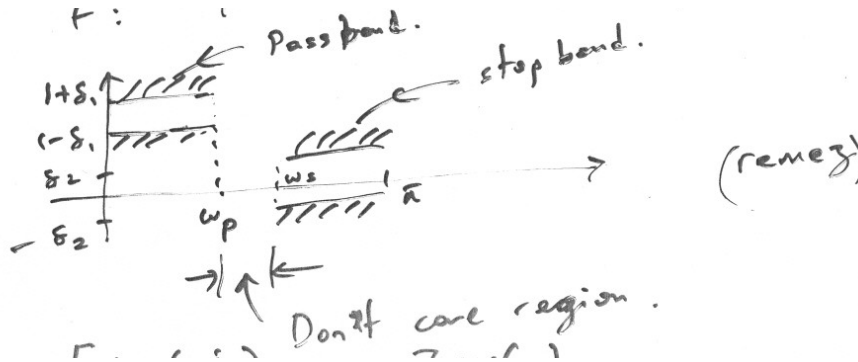 Pass band.
stop band.
1+δ₁
1-δ₁
δ₂
ωs
π
(remez)
ωp
- δ₂
Don't care region.